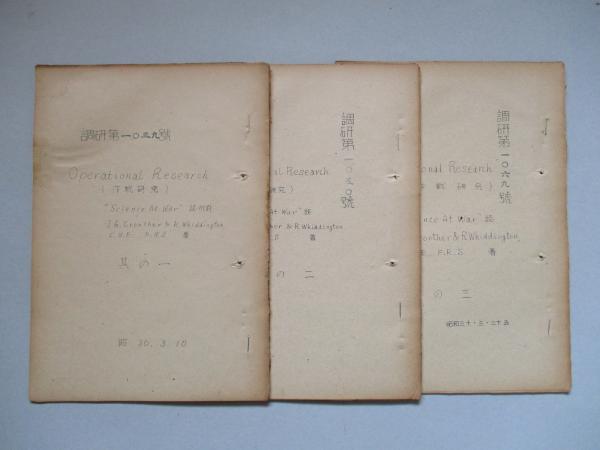 調研第一〇三九號
Operational Research
(作戦研究)
"Science At War"
J.G. Crowther & R. Whiddington
C.B.E. F.R.S 著
其の一
昭 30.3.10
調研第一〇五〇號
al Research
研究)
At War" 誌
ther & R. Whiddington
著
の二
調研第一〇六九號
onal Research
作戦研究)
nce At War" 誌
rowther & R. Whiddington
F.R.S 著
の三
昭和三十・三・二十五